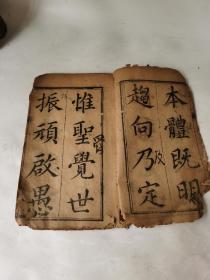 本體既明
趨向乃定
惟聖覺世
振頑啟愚